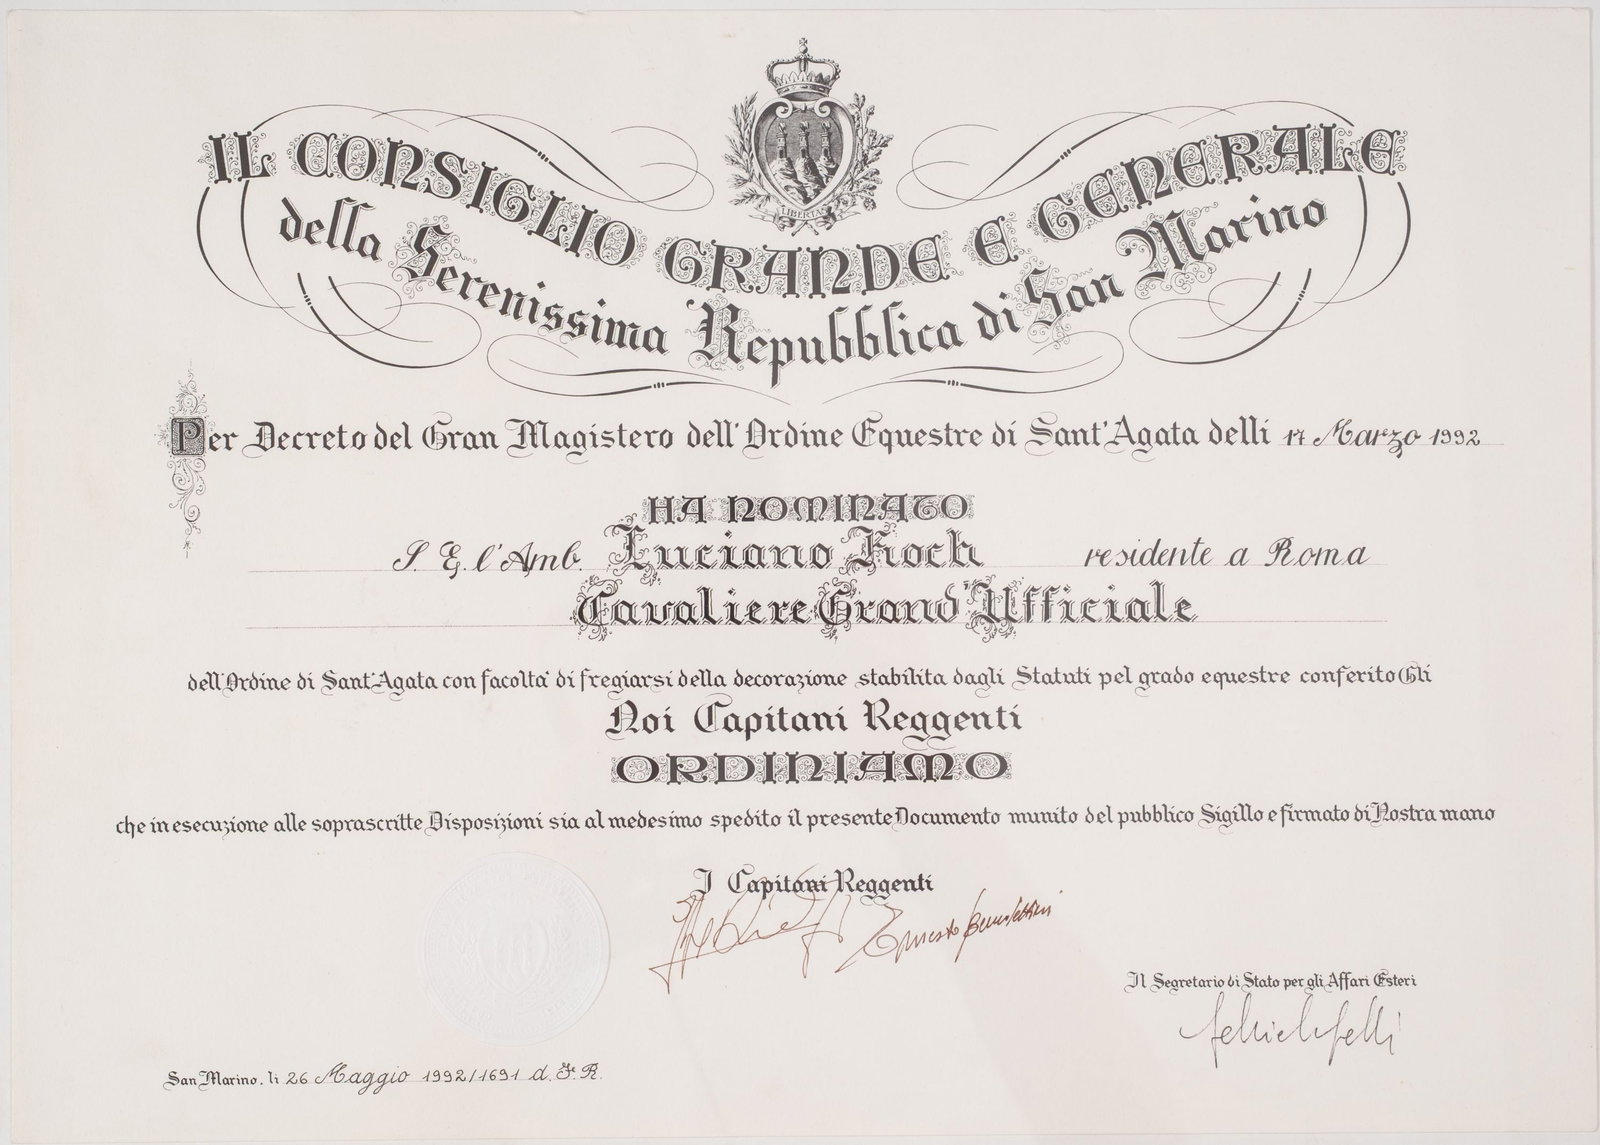 LIBERTAS
IL CONSIGLIO GRANDE E GENERALE
della Serenissima Repubblica di San Marino
Per Decreto del Gran Magistero dell'Ordine Equestre di Sant'Agata delli 17 Marzo 1992
HA NOMINATO
S. E. l'Amb. Luciano Koch residente a Roma
Cavaliere Grand'Ufficiale
dell'Ordine di Sant'Agata con facolta' di fregiarsi della decorazione stabilita dagli Statuti pel grado equestre conferitoGli
Noi Capitani Reggenti
ORDINIAMO
che in esecuzione alle soprascritte Disposizioni sia al medesimo spedito il presente Documento munito del pubblico Sigillo e firmato di Nostra mano
I Capitani Reggenti
Ernesto Benedettini
Il Segretario di Stato per gli Affari Esteri
San Marino, li 26 Maggio 1992/1691 d. F. R.